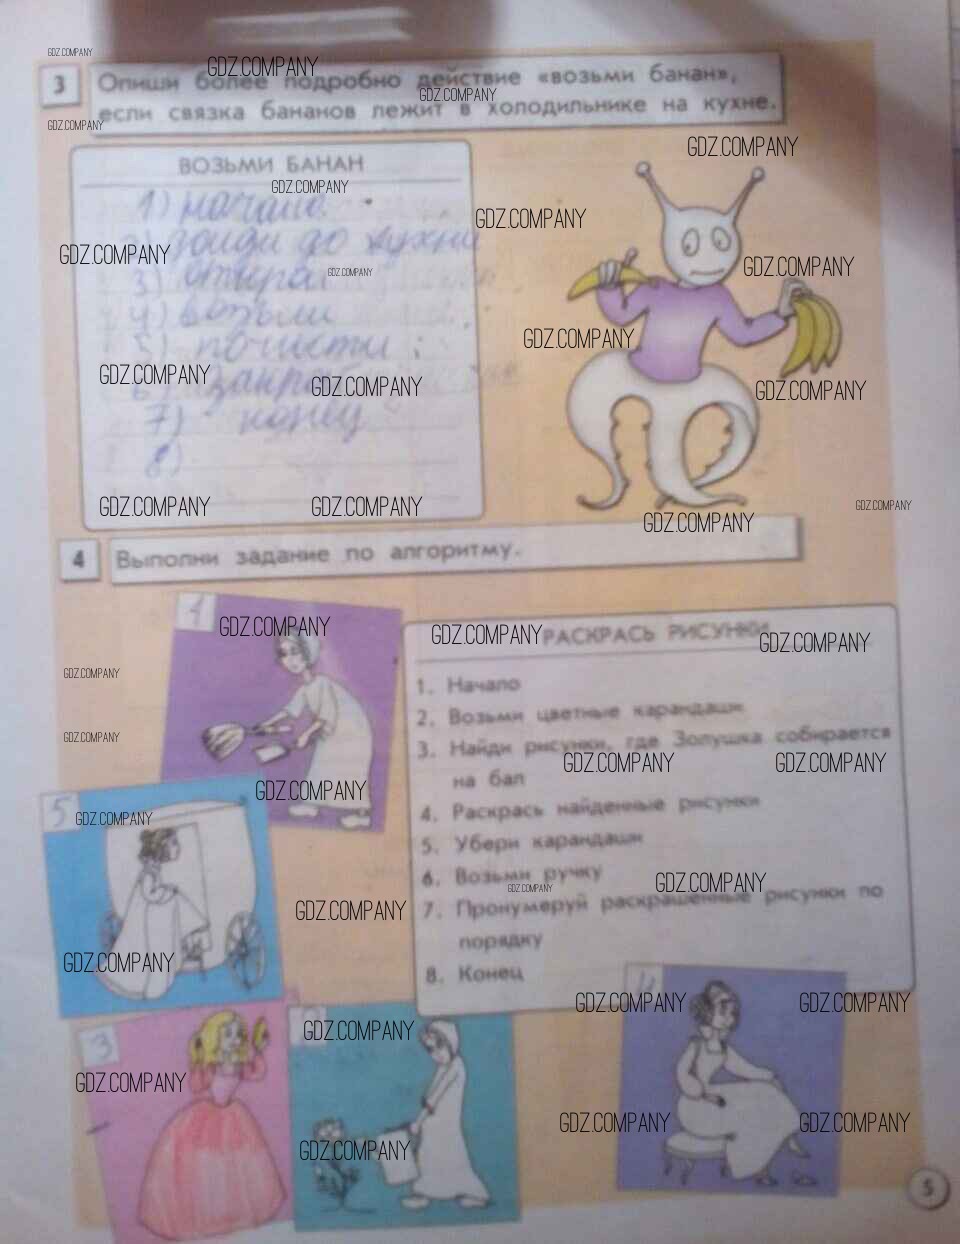 GDZ.COMPANY
3 Опиши более подробно действие «возьми банан»,
если связка бананов лежит в холодильнике на кухне.
ВОЗЬМИ БАНАН
1) начало
дойди до кухни
3) открой
4) возьми
5) почисти
6)
7) конец
8)
4 Выполни задание по алгоритму.
1
РАСКРАСЬ РИСУНКИ
1. Начало
2. Возьми цветные карандаши
3. Найди рисунки, где Золушка собирается
на бал
4. Раскрась найденные рисунки
5. Убери карандаши
6. Возьми ручку
7. Пронумеруй раскрашенные рисунки по
порядку
8. Конец
5
3
4
5